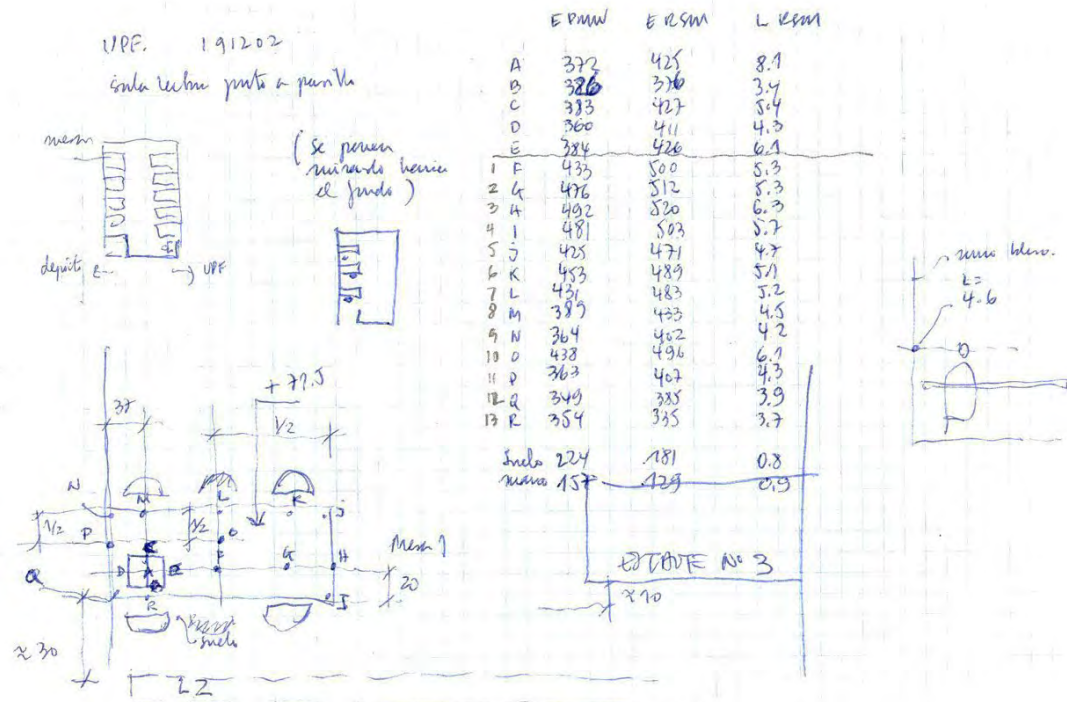 UPF. 191202
sala lectura junto a pasillo
mesas
(Se ponen
mirando hacia
el fondo)
depósito ←
→ UPF
E PMW E RSM L RSM
A 372 425 8.1
B 326 376 3.4
C 383 427 5.4
D 360 411 4.3
E 384 426 6.1
1 F 433 500 5.3
2 G 476 512 5.3
3 H 492 520 6.3
4 I 481 503 5.7
5 J 425 471 4.7
6 K 453 489 5.1
7 L 431 483 5.2
8 M 389 433 4.5
9 N 364 402 4.2
10 O 438 496 6.1
11 P 363 407 4.3
12 Q 349 385 3.9
13 R 354 335 3.7
Suelo 224 181 0.8
mano 157 129 0.9
L=
4.6
D
+ 71.5
37
1/2
N
M
L
K
J
1/2
P
1/2
O
C
D A E
F
G
H
Mesa 1
Q
R
I
20
suelo
≈ 30
L2
ESTANTE No 3
≈ 10